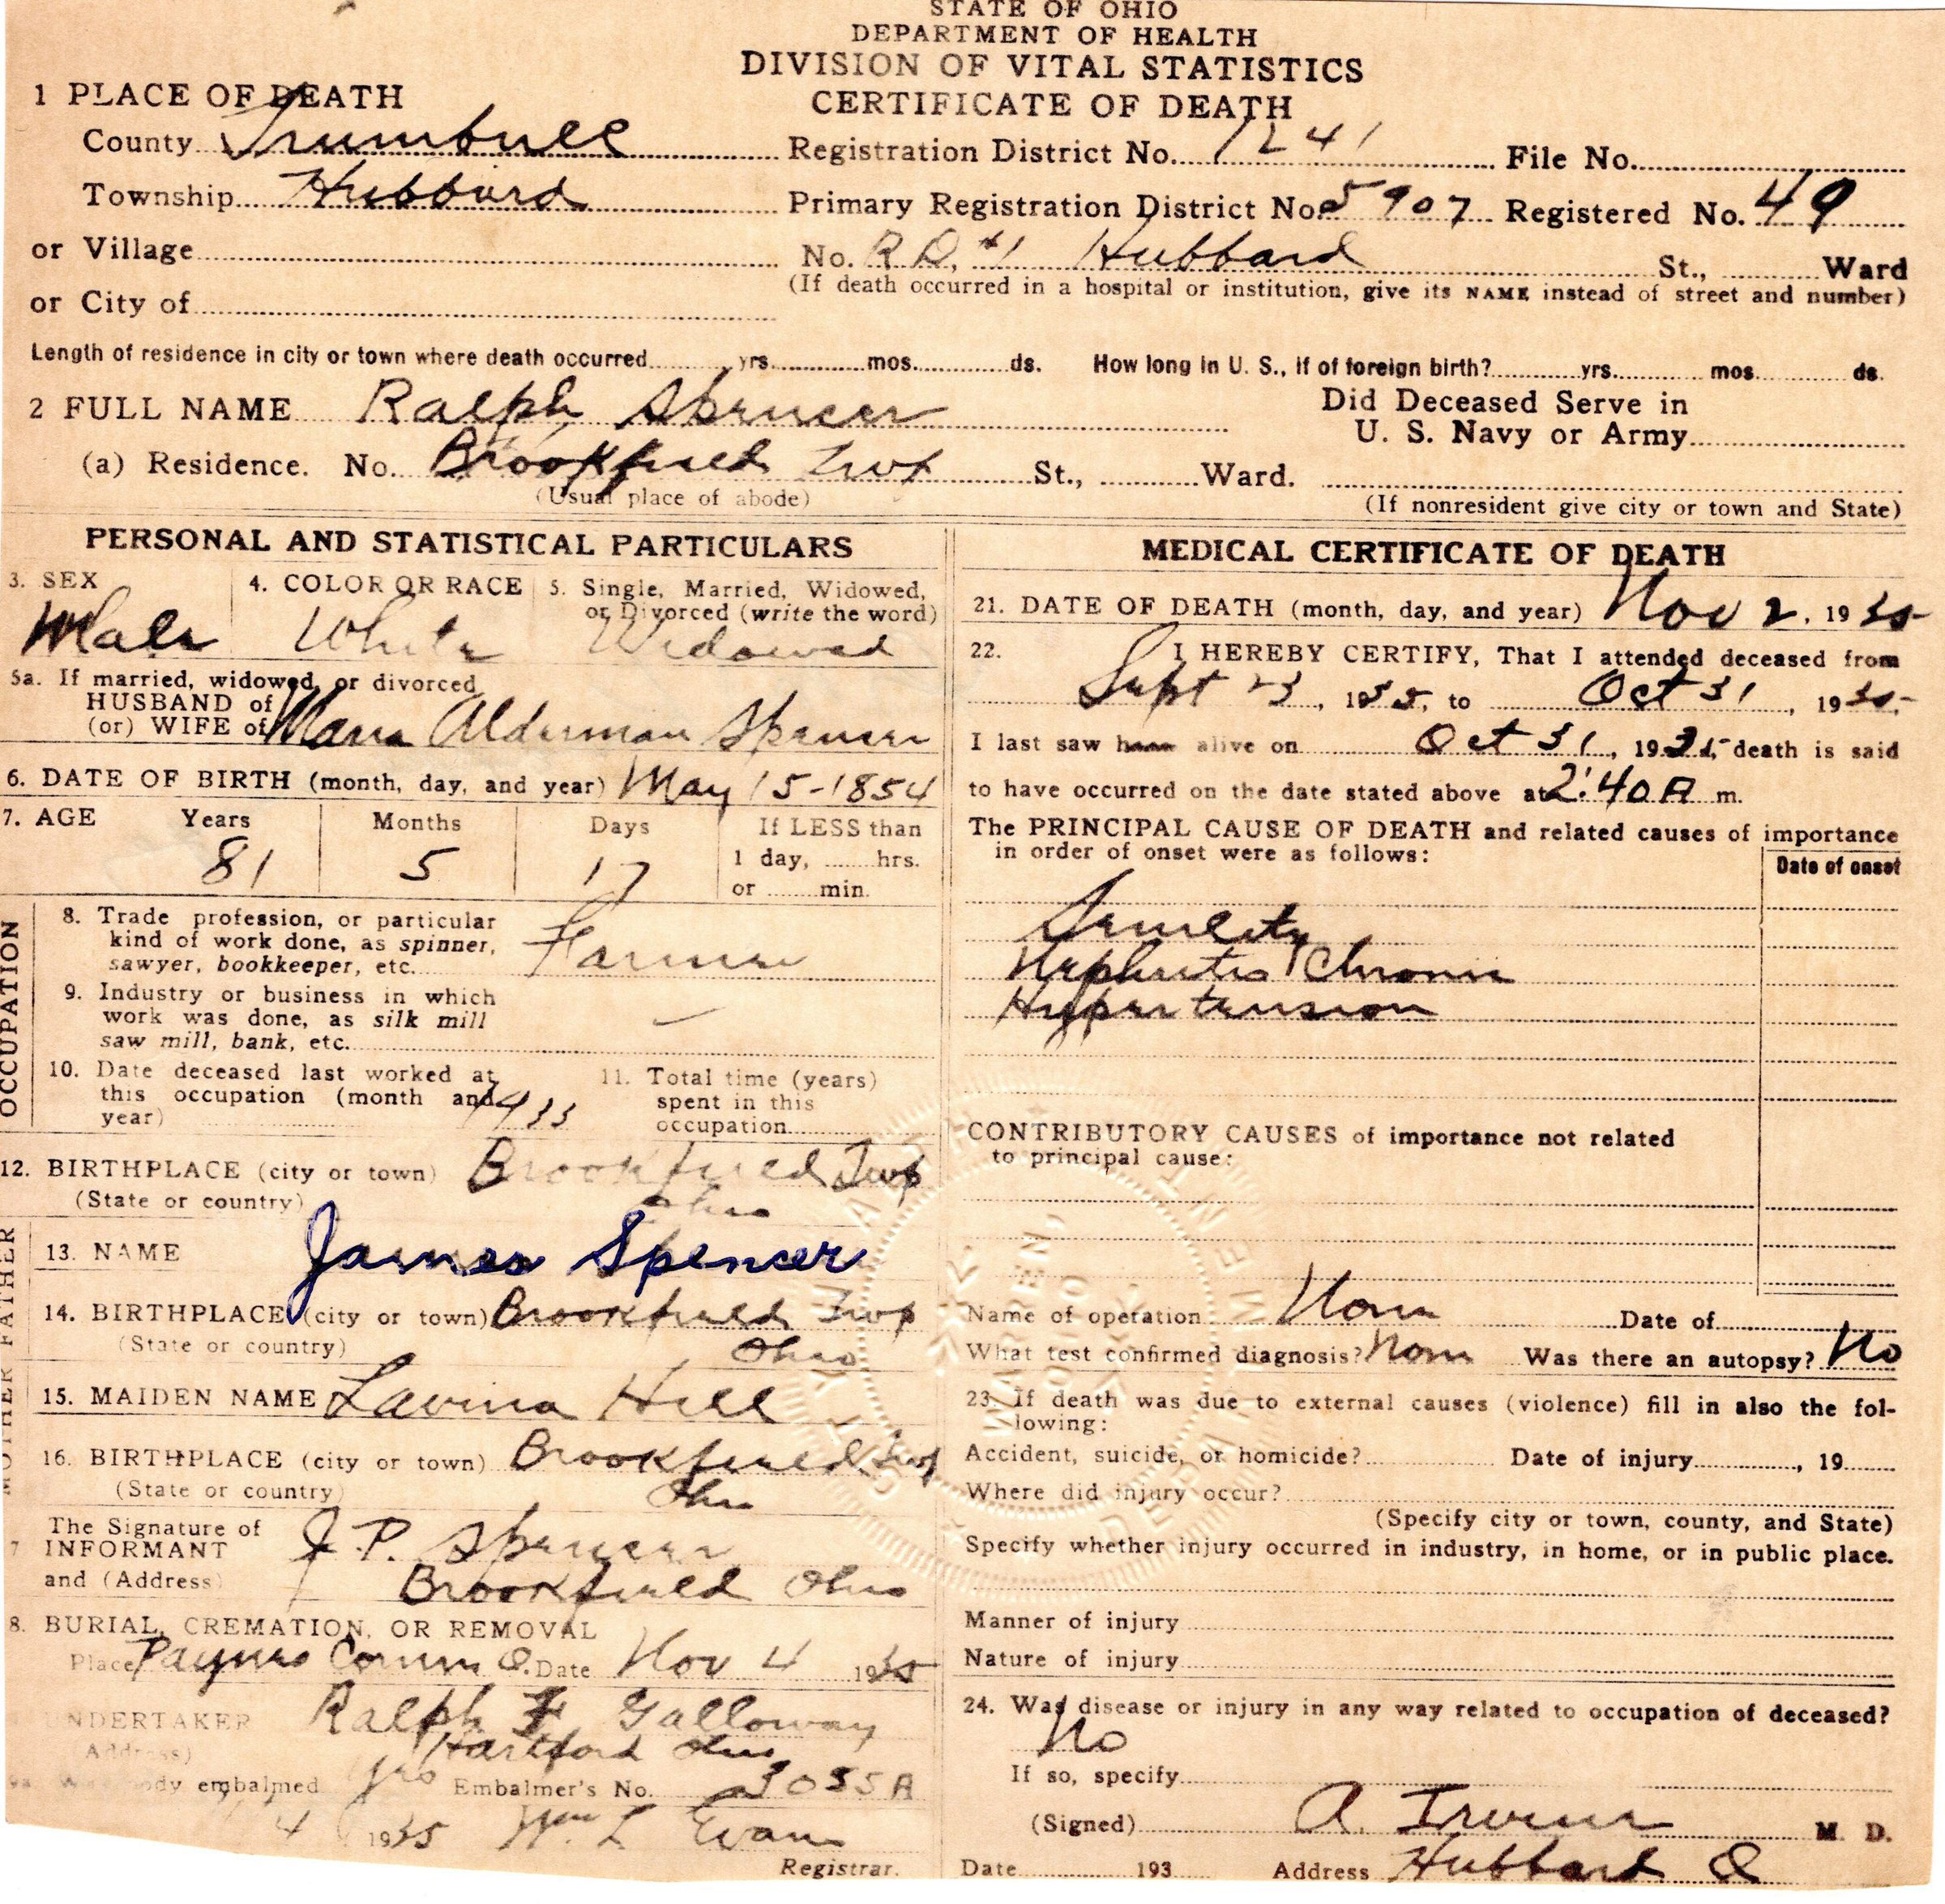 STATE OF OHIO
DEPARTMENT OF HEALTH
DIVISION OF VITAL STATISTICS
CERTIFICATE OF DEATH
1 PLACE OF DEATH
County Trumbull Registration District No. 1241 File No.
Township Hubbard Primary Registration District No. 5907 Registered No. 49
or Village No. R.D. #1 Hubbard St., Ward
(If death occurred in a hospital or institution, give its NAME instead of street and number)
or City of
Length of residence in city or town where death occurred yrs. mos. ds. How long in U. S., if of foreign birth? yrs. mos. ds.
2 FULL NAME Ralph Spencer Did Deceased Serve in
U. S. Navy or Army
(a) Residence. No. Brookfield Twp St., Ward.
(Usual place of abode) (If nonresident give city or town and State)
PERSONAL AND STATISTICAL PARTICULARS
3. SEX 4. COLOR OR RACE 5. Single, Married, Widowed,
or Divorced (write the word)
Male White Widowed
5a. If married, widowed, or divorced
HUSBAND of
(or) WIFE of Maria Alderman Spencer
6. DATE OF BIRTH (month, day, and year) May 15-1854
7. AGE Years Months Days If LESS than
1 day, hrs.
or min.
81 5 17
OCCUPATION
8. Trade profession, or particular
kind of work done, as spinner,
sawyer, bookkeeper, etc. Farmer
9. Industry or business in which
work was done, as silk mill
saw mill, bank, etc. —
10. Date deceased last worked at
this occupation (month and
year) 1933
11. Total time (years)
spent in this
occupation
12. BIRTHPLACE (city or town) Brookfield Twp
(State or country) Ohio
FATHER
13. NAME James Spencer
14. BIRTHPLACE (city or town) Brookfield Twp
(State or country) Ohio
MOTHER
15. MAIDEN NAME Lavina Hill
16. BIRTHPLACE (city or town) Brookfield Twp
(State or country) Ohio
The Signature of
7 INFORMANT J. P. Spencer
and (Address) Brookfield Ohio
8. BURIAL, CREMATION, OR REMOVAL
Place Paynes Corners O. Date Nov 4 1935
UNDERTAKER Ralph F Galloway
Address) Hartford Ohio
body embalmed yes Embalmer's No. 3055A
4 1935 Wm L Evans
Registrar.
MEDICAL CERTIFICATE OF DEATH
21. DATE OF DEATH (month, day, and year) Nov 2, 1935
22. I HEREBY CERTIFY, That I attended deceased from
Sept 23, 1935, to Oct 31, 1935.
I last saw h alive on Oct 31, 1935, death is said
to have occurred on the date stated above at 2:40 A m.
The PRINCIPAL CAUSE OF DEATH and related causes of importance
in order of onset were as follows:
Date of onset
Senility
Nephritis Chronic
Hypertension
CONTRIBUTORY CAUSES of importance not related
to principal cause:
Name of operation None Date of
What test confirmed diagnosis? None Was there an autopsy? No
23. If death was due to external causes (violence) fill in also the fol-
lowing:
Accident, suicide, or homicide? Date of injury , 19
Where did injury occur?
(Specify city or town, county, and State)
Specify whether injury occurred in industry, in home, or in public place.
Manner of injury
Nature of injury
24. Was disease or injury in any way related to occupation of deceased?
No
If so, specify
(Signed) A. Irvine M. D.
Date 193 Address Hubbard O